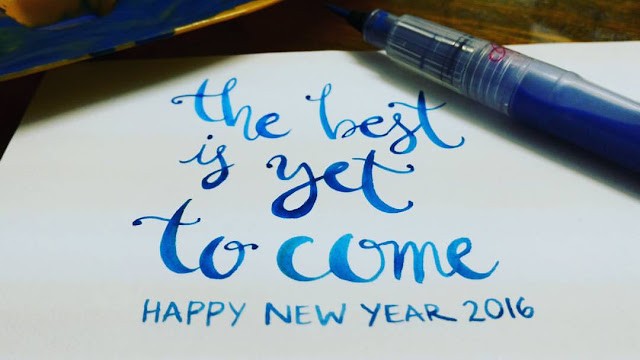 the best
is yet
to come
HAPPY NEW YEAR 2016